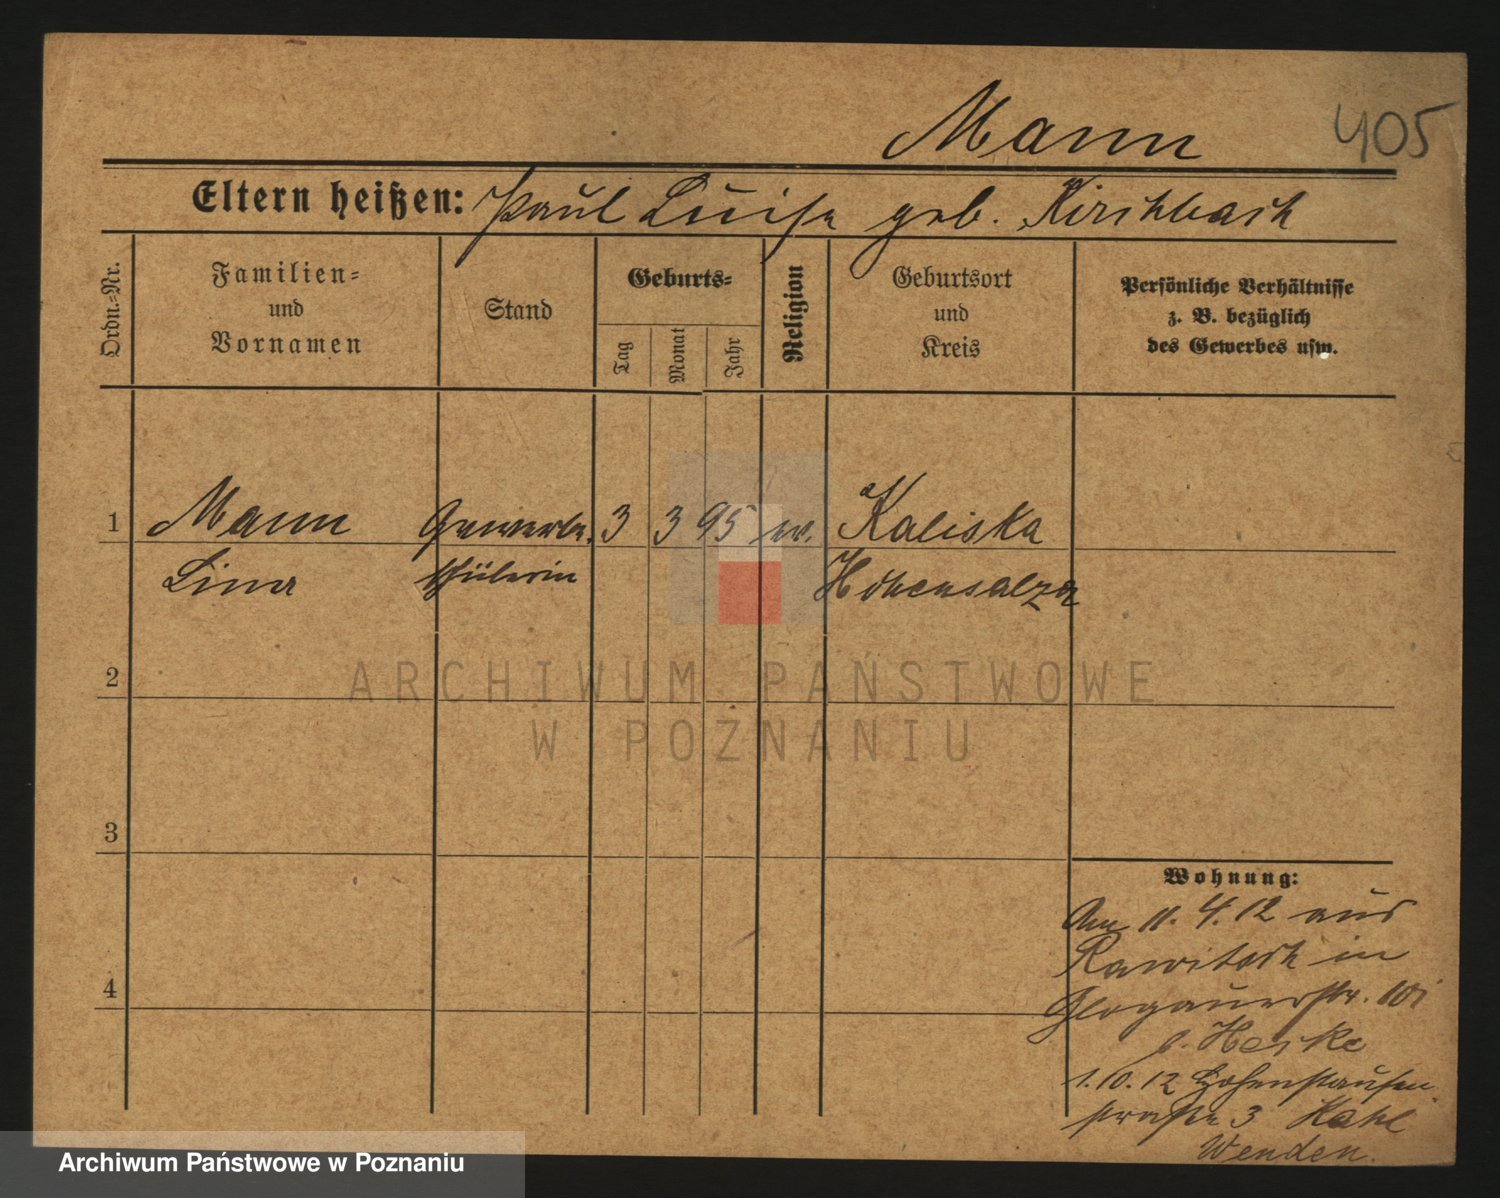 Mann
405
Eltern heißen: Paul Luise geb. Kirschbach
Ordn.-Nr.
Familien-
und
Vornamen
Stand
Geburts-
Tag
Monat
Jahr
Religion
Geburtsort
und
Kreis
Persönliche Verhältnisse
z. B. bezüglich
des Gewerbes usw.
1 Mann Gewerbe. 3 3 95 ev. Kaliska
Lina schülerin Hohensalza
2
3
4
Wohnung:
Am 11. 4. 12 aus
Rawitsch in
Glogauerstr.
b. Heske
1. 10. 12 Hohenstaufen
straße 3
Wenden.
ARCHIWUM PAŃSTWOWE
W POZNANIU
Archiwum Państwowe w Poznaniu